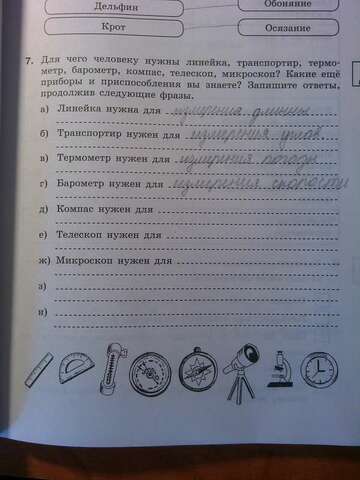 Дельфин
Обоняние
Крот
Осязание
7. Для чего человеку нужны линейка, транспортир, термо-
метр, барометр, компас, телескоп, микроскоп? Какие ещё
приборы и приспособления вы знаете? Запишите ответы,
продолжив следующие фразы.
а) Линейка нужна для измерения длинны
б) Транспортир нужен для измерения углов
в) Термометр нужен для измериния погоды
г) Барометр нужен для измериния скорости
д) Компас нужен для
е) Телескоп нужен для
ж) Микроскоп нужен для
з)
и)